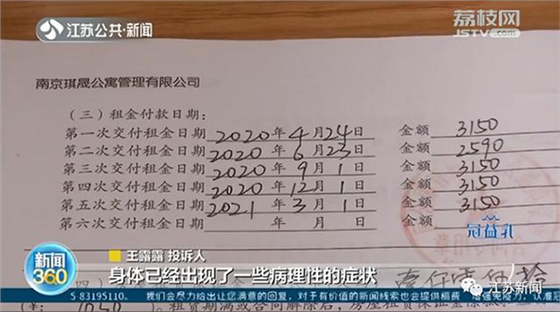 江苏公共·新闻
荔枝网
JSTV.COM
南京琪晟公寓管理有限公司
（三）租金付款日期：
第一次交付租金日期 2020 年 4 月 24 日 金额 3150
第二次交付租金日期 2020 年 6 月 23 日 金额 2590
第三次交付租金日期 2020 年 9 月 1 日 金额 3150
第四次交付租金日期 2020 年 12 月 1 日 金额 3150
第五次交付租金日期 2021 年 3 月 1 日 金额 3150
第六次交付租金日期 年 月 日 金额
冠益乳
新闻360
王露露 投诉人
身体已经出现了一些病理性的症状
江苏新闻
5 83195110. 我们会尽力给出让您满意的回复，对于有价值的新闻线索也会提供稿费
增强免疫力，认准